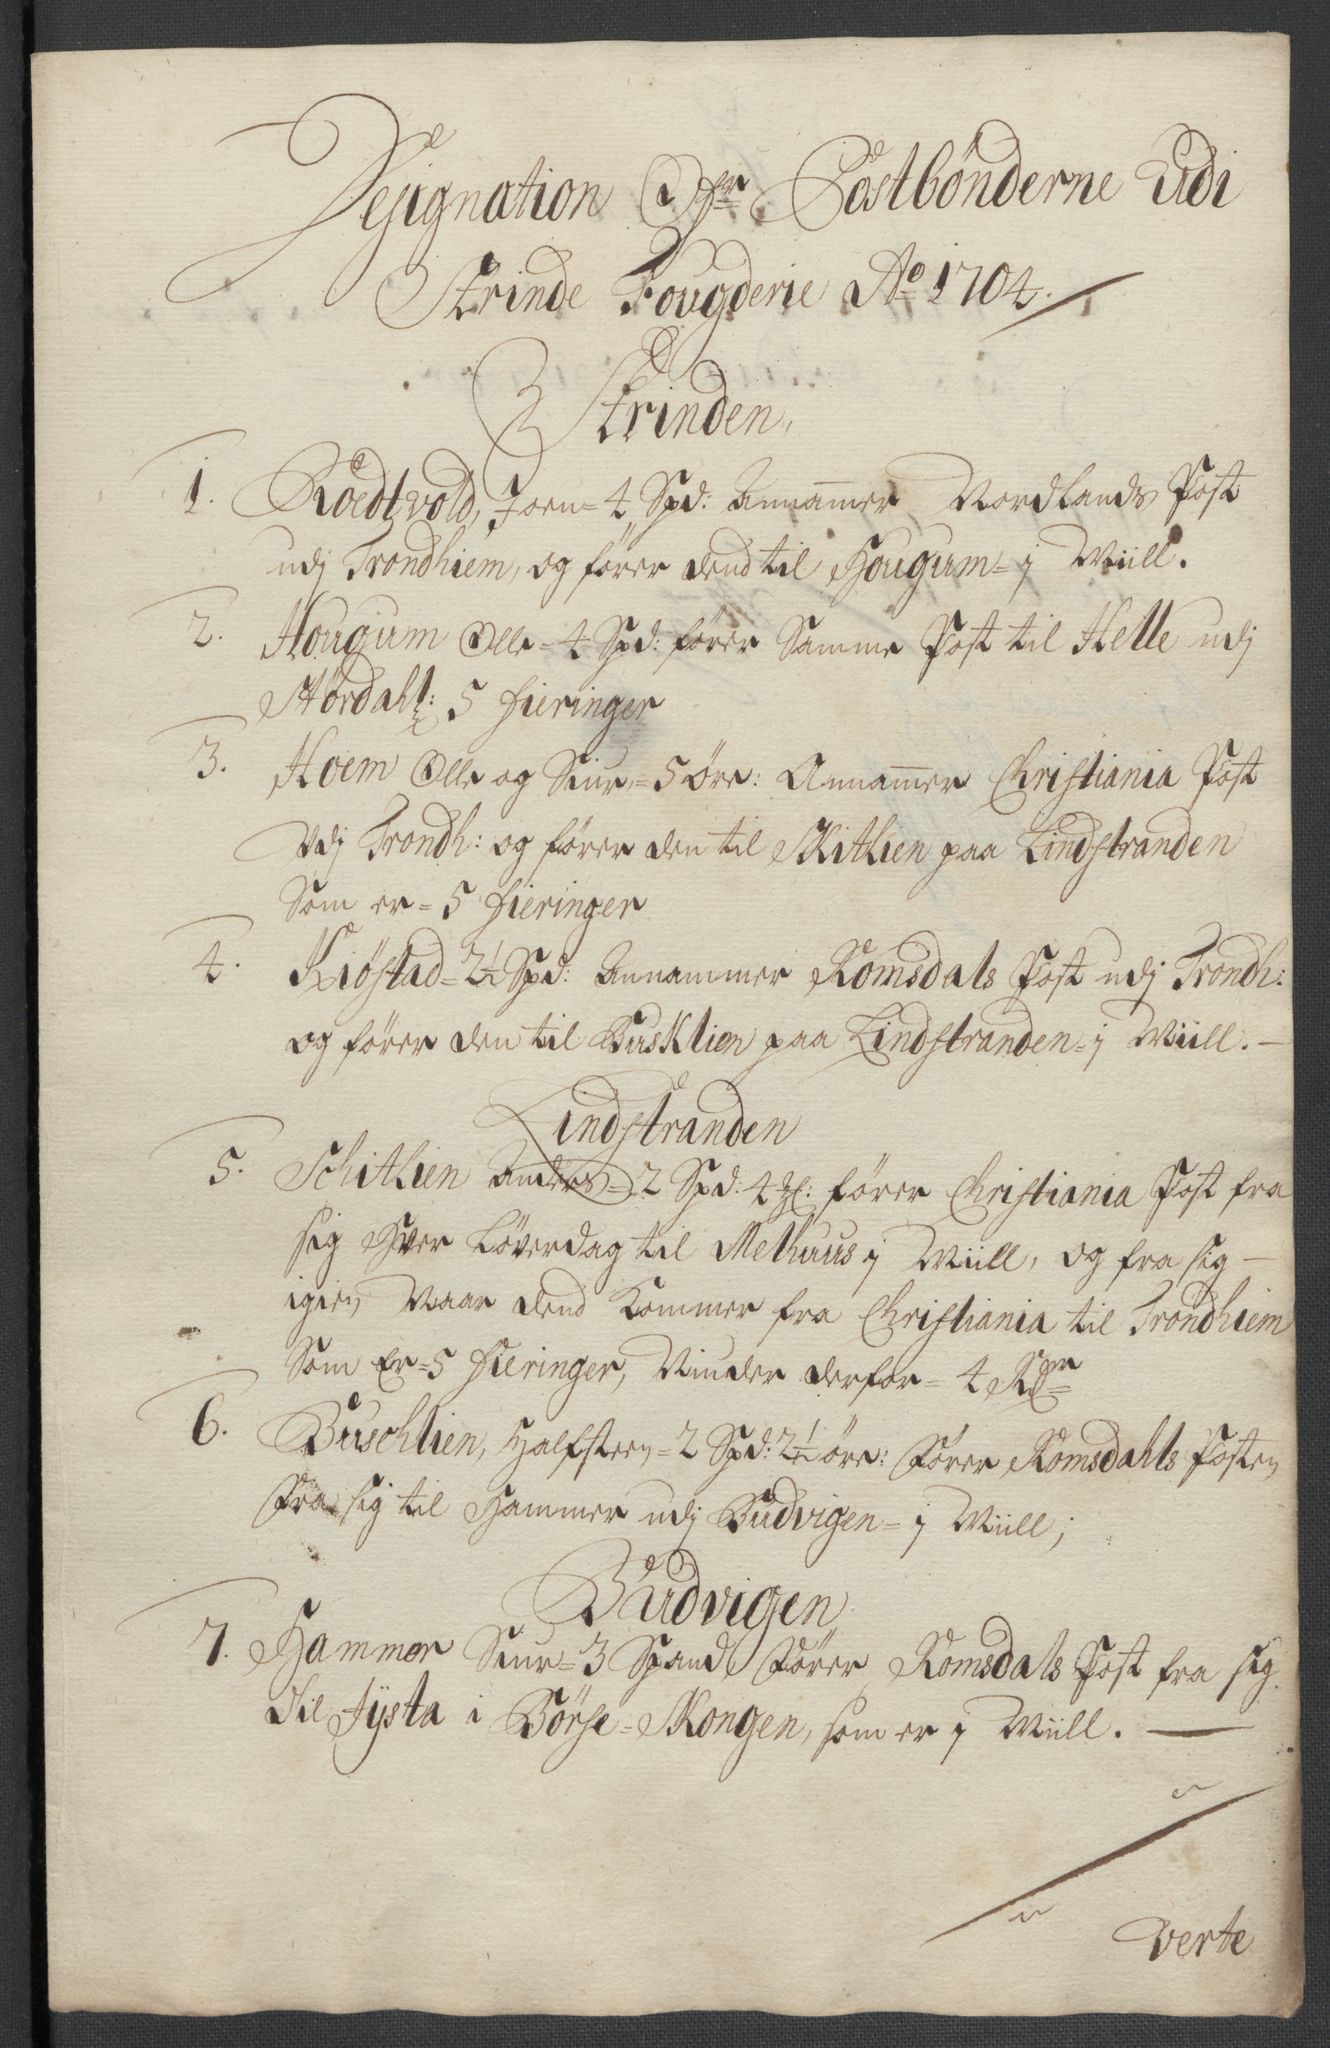 Designation Ofr Postbønderne Udi
Strinde Fougderie Ao 1704.
Strinden
1. Roedtvold, Joen = 4 Spd: Annamer Nordlands Post
udj Trondhiem, og fører dend til Hougum = j Miill.
2. Hougum Olle = 4 Spd: fører Samme Post til Helle udj
Størdahl: 5 fieringer
3. Hoem Olle og Siur, = 5 Øre: Annamer Christiania Post
Udj Trondh: og fører den til Skitlien paa Lindstranden
Som er = 5 fieringer
4. Kiøstad = 2½ Spd: Annammer Romsdals Post udj Trondh:
og fører den til Busklien paa Lindstranden = j Miill. —
Lindstranden
5. Schitlien Anders = 2 Spd. 4 : fører Christiania Post fra
sig Hver Løverdag til Melhuus j Miill, og fra sig —
igien Naar dend Kommer fra Christiania til Trondhiem
Som Er = 5 fieringer, Niuder derfor = 4 Rdr
6. Buschlien, Halfsteen = 2 Spd: 2½ øre: Fører Romsdahls Posten
Fra sig til Hammer udj Budvigen = j Miill;
Budvigen
7. Hammer Siur = 3 Spand Fører Romsdals Post fra sig
til Iysta i Børse = Skongen, som er j Miill. —
Verte